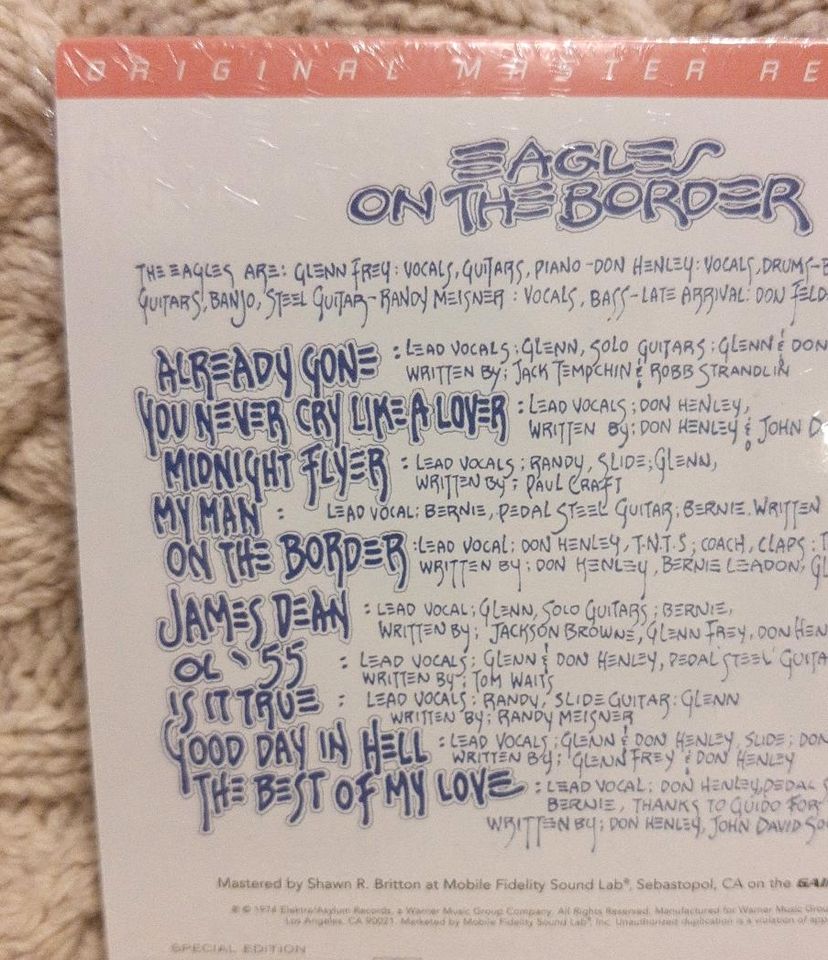 ORIGINAL MASTER RE
EAGLES
ON THE BORDER
THE EAGLES ARE: GLENN FREY: VOCALS, GUITARS, PIANO - DON HENLEY: VOCALS, DRUMS - B
GUITARS, BANJO, STEEL GUITAR - RANDY MEISNER: VOCALS, BASS - LATE ARRIVAL: DON FELD
ALREADY GONE : LEAD VOCALS; GLENN, SOLO GUITARS; GLENN & DON
WRITTEN BY; JACK TEMPCHIN & ROBB STRANDLIN
YOU NEVER CRY LIKE A LOVER : LEAD VOCALS; DON HENLEY,
WRITTEN BY; DON HENLEY & JOHN D
MIDNIGHT FLYER : LEAD VOCALS; RANDY, SLIDE; GLENN,
WRITTEN BY; PAUL CRAFT
MY MAN : LEAD VOCAL; BERNIE, PEDAL STEEL GUITAR; BERNIE. WRITTEN
ON THE BORDER : LEAD VOCAL; DON HENLEY, T.N.T.S; COACH, CLAPS : T
WRITTEN BY; DON HENLEY, BERNIE LEADON, GL
JAMES DEAN : LEAD VOCAL; GLENN, SOLO GUITARS; BERNIE,
WRITTEN BY; JACKSON BROWNE, GLENN FREY, DON HEN
OL '55 : LEAD VOCALS; GLENN & DON HENLEY, PEDAL STEEL GUITA
WRITTEN BY; TOM WAITS
IS IT TRUE : LEAD VOCALS; RANDY, SLIDE GUITAR: GLENN
WRITTEN BY; RANDY MEISNER
GOOD DAY IN HELL : LEAD VOCALS; GLENN & DON HENLEY, SLIDE; DON
WRITTEN BY; GLENN FREY & DON HENLEY
THE BEST OF MY LOVE : LEAD VOCAL; DON HENLEY, PEDAL S
BERNIE, THANKS TO GUIDO FOR
WRITTEN BY; DON HENLEY, JOHN DAVID SOU
Mastered by Shawn R. Britton at Mobile Fidelity Sound Lab®, Sebastopol, CA on the GAI
℗ © 1974 Elektra/Asylum Records, a Warner Music Group Company. All Rights Reserved. Manufactured for Warner Music Grou
Los Angeles, CA 90021. Marketed by Mobile Fidelity Sound Lab®, Inc. Unauthorized duplication is a violation of app
SPECIAL EDITION